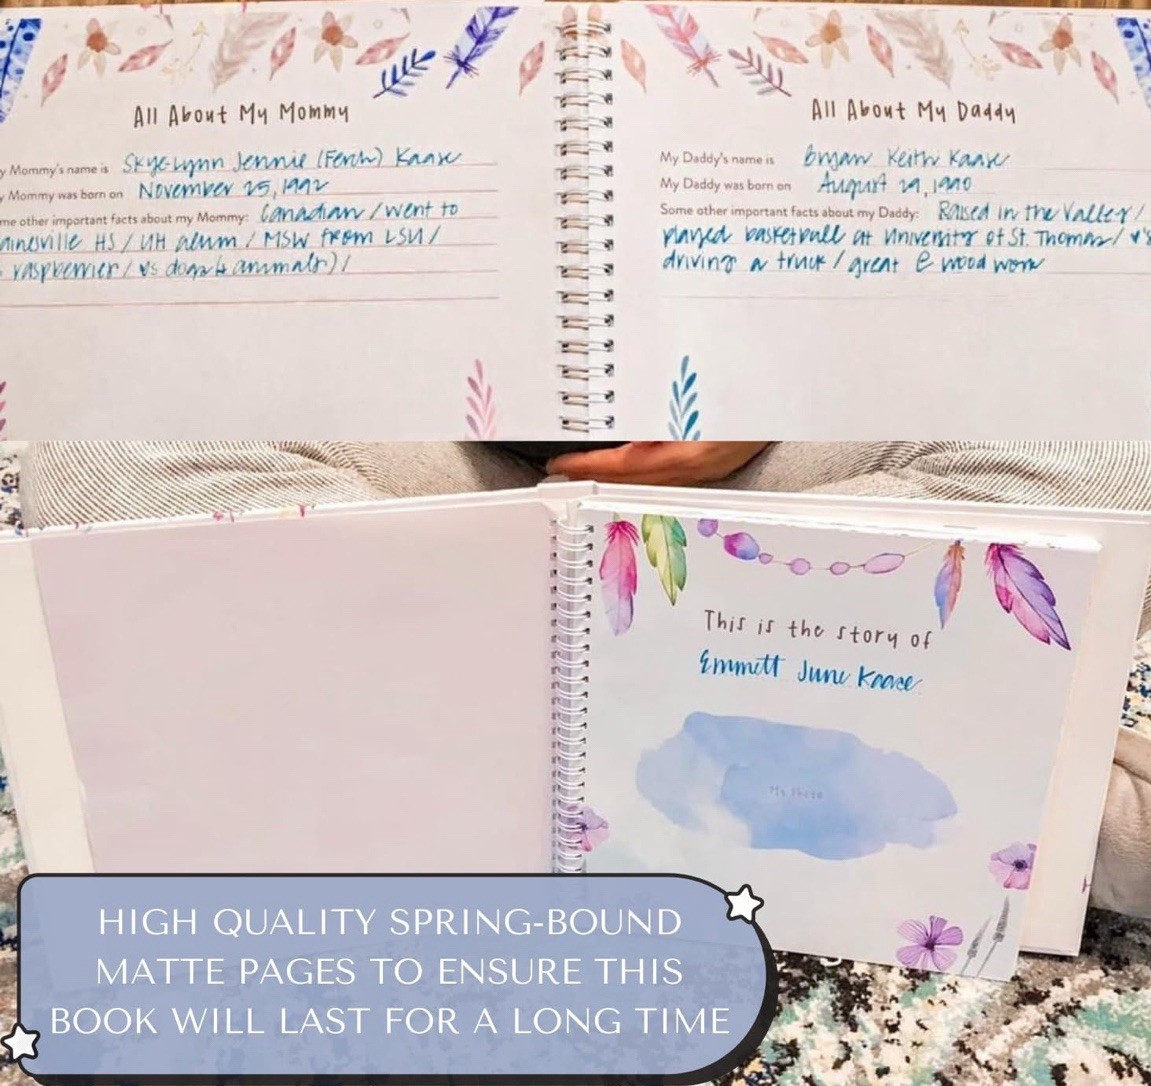 All About My Mommy
y Mommy's name is Skye-Lynn Jennie (Ferch) Kaase
y Mommy was born on November 25, 1992
me other important facts about my Mommy: Canadian / went to
ainesville HS / UH alum / MSW from LSU /
raspberries / ♥s dogs (& animals) /
All About My Daddy
My Daddy's name is Bryan Keith Kaase
My Daddy was born on August 29, 1990
Some other important facts about my Daddy: Raised in the Valley /
played basketball at University of St. Thomas / ♥'s
driving a truck / great @ wood work
This is the story of
Emmett June Kaase
My Photo
HIGH QUALITY SPRING-BOUND
MATTE PAGES TO ENSURE THIS
BOOK WILL LAST FOR A LONG TIME